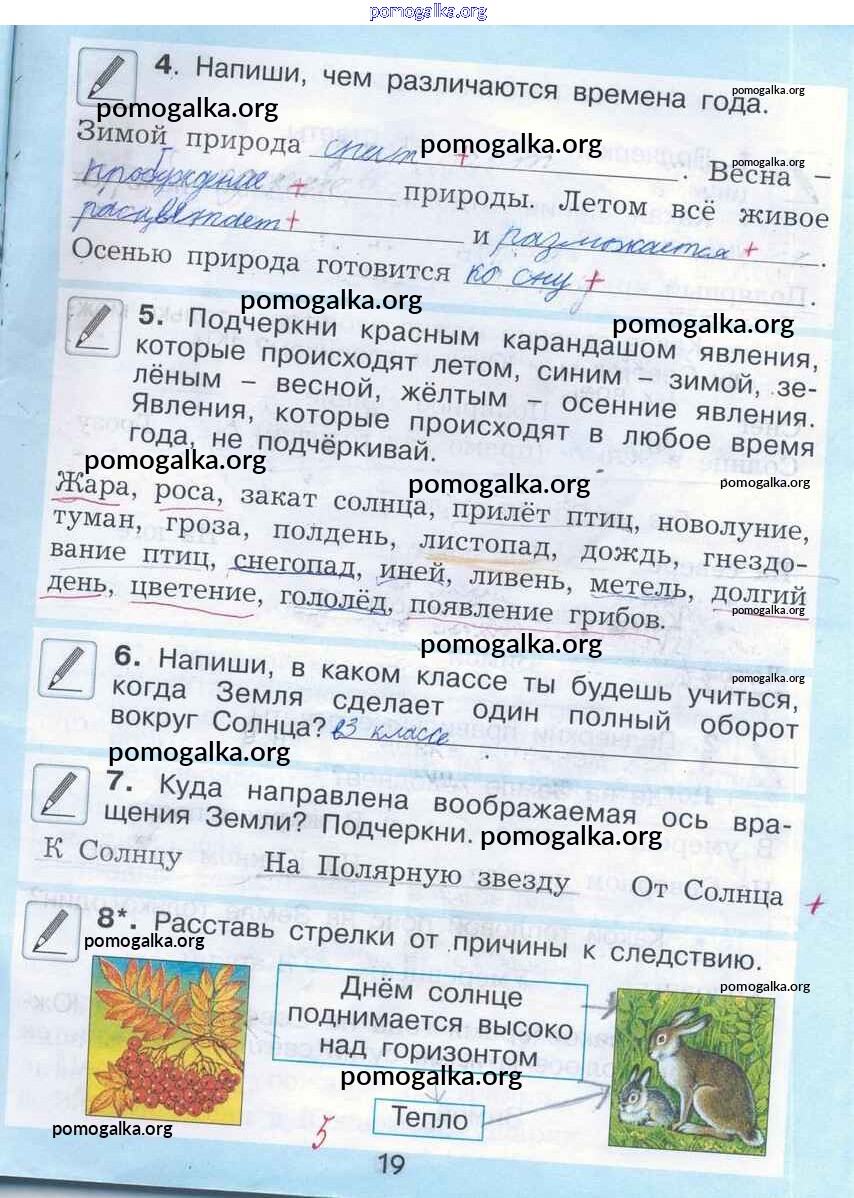 pomogalka.org
4. Напиши, чем различаются времена года.
pomogalka.org
pomogalka.org
Зимой природа спит + pomogalka.org . Весна –
пробуждение + природы. Летом всё живое
расцветает + и размножается + .
Осенью природа готовится ко сну + .
pomogalka.org
pomogalka.org
5. Подчеркни красным карандашом явления,
которые происходят летом, синим – зимой, зе-
лёным – весной, жёлтым – осенние явления.
Явления, которые происходят в любое время
года, не подчёркивай.
pomogalka.org
pomogalka.org
pomogalka.org
Жара, роса, закат солнца, прилёт птиц, новолуние,
туман, гроза, полдень, листопад, дождь, гнездо-
вание птиц, снегопад, иней, ливень, метель, долгий
день, цветение, гололёд, появление грибов.
pomogalka.org
pomogalka.org
pomogalka.org
6. Напиши, в каком классе ты будешь учиться,
когда Земля сделает один полный оборот
вокруг Солнца? в 3 классе
pomogalka.org
7. Куда направлена воображаемая ось вра-
щения Земли? Подчеркни. pomogalka.org
К Солнцу На Полярную звезду От Солнца +
8*. Расставь стрелки от причины к следствию.
pomogalka.org
pomogalka.org
Днём солнце
поднимается высоко
над горизонтом
pomogalka.org
Тепло
5
pomogalka.org
19